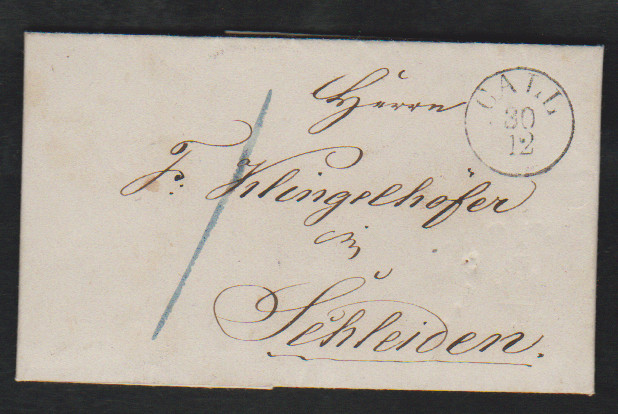 Herrn
F: Klingelhöfer
in
Schleiden.
CALL
30
12